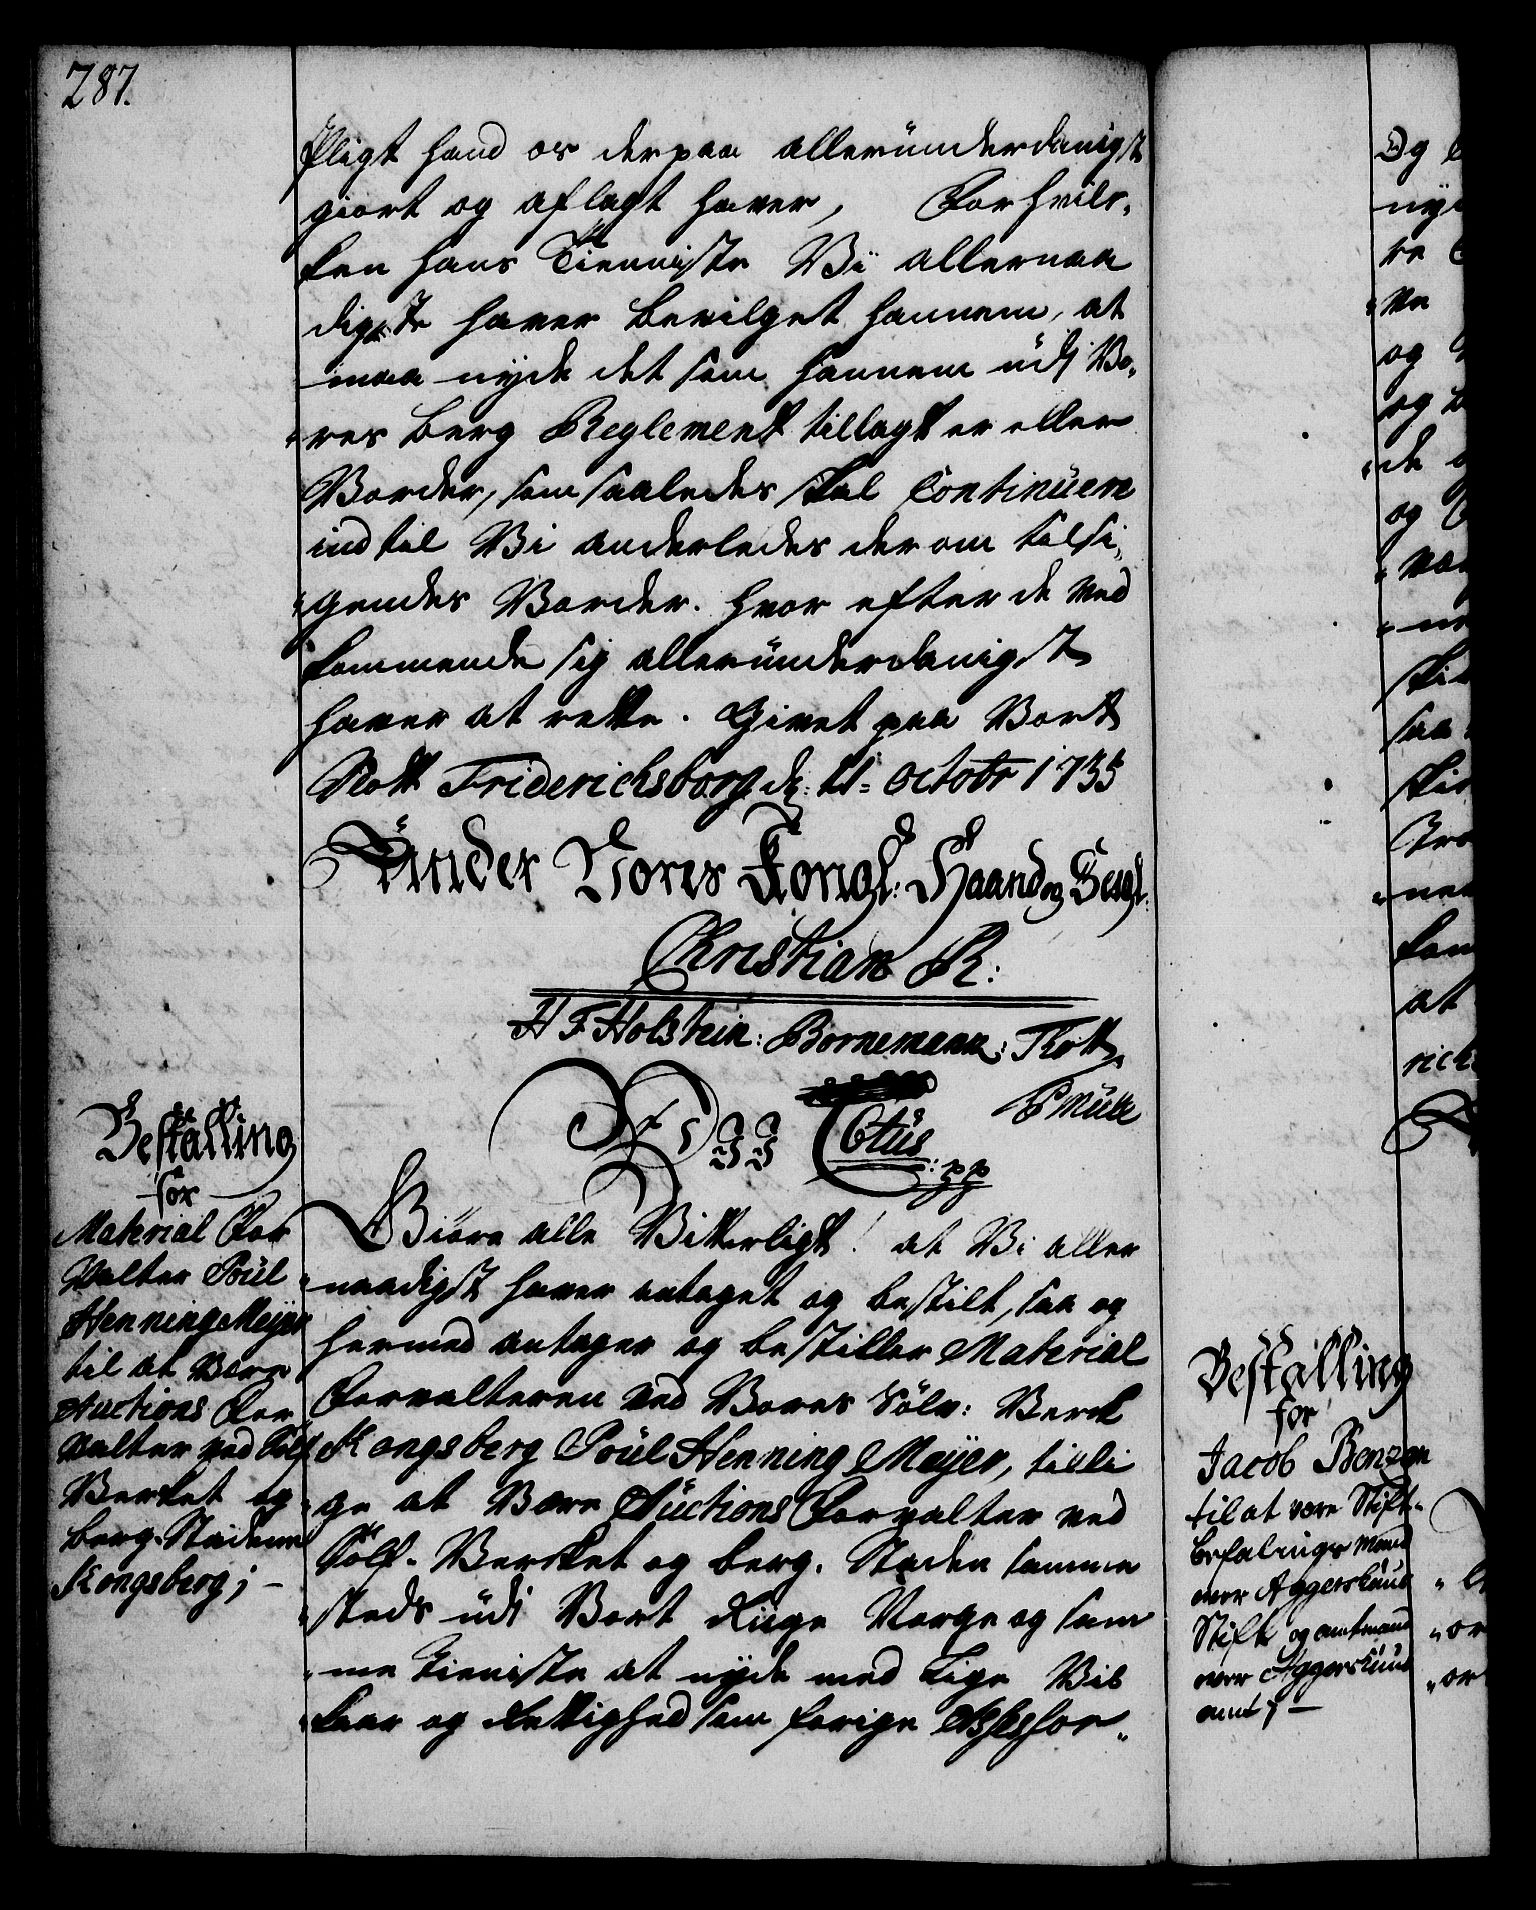 287.
Pligt hand os derpaa alleründerdanigst
giort og aflagt haver, For hvil-
ken hans Tienniste Vi allernaa
digste haver bevilget hannem, at
maa nyde det som hannem udj Vo-
res Berg Reglement tillagt er eller
Vorder, som saaledes skal Continüere
indtil Vi anderledes derom tilsi-
gendes Vorder. Hvor efter de Ved
kommende sig alleründerdanigst
haver at rette. Givet paa Vort
Slott Friderichsborg d: 11= octobr 1735
Ünder Vores Kongl: Haand og Seigl:
Christian R:
H F Holstein: Bornemann: Thott
Müller
C 6tüs
Bestalling
for
Material For
Valter Poül
Henning Meyer
til at Være
Auctions For
Valter ved Sölf
Verket og
berg-Staden
Kongsberg; -
Giöre alle Vitterligt! at Vi aller
naadigst haver antaget og bestilt, saa og
hermed antager og bestiller Material
Forvalteren ved Vores Sölv: Verck
Kongsberg Poül Henning Meyer, tilli
ge at Være Auctions Forvalter ved
Sölf-Verket og berg-Staden samme
steds üdj Vort Rige Norge og sam
me tieniste at nyde med Lige Vil
kaar og Rettighed som forige Assessor
Bestalling
for
Jacob Benzon
til at være Stift-
befalings Mand
over Aggershüus
Stift og amtmand
over Aggershüus
amt; -